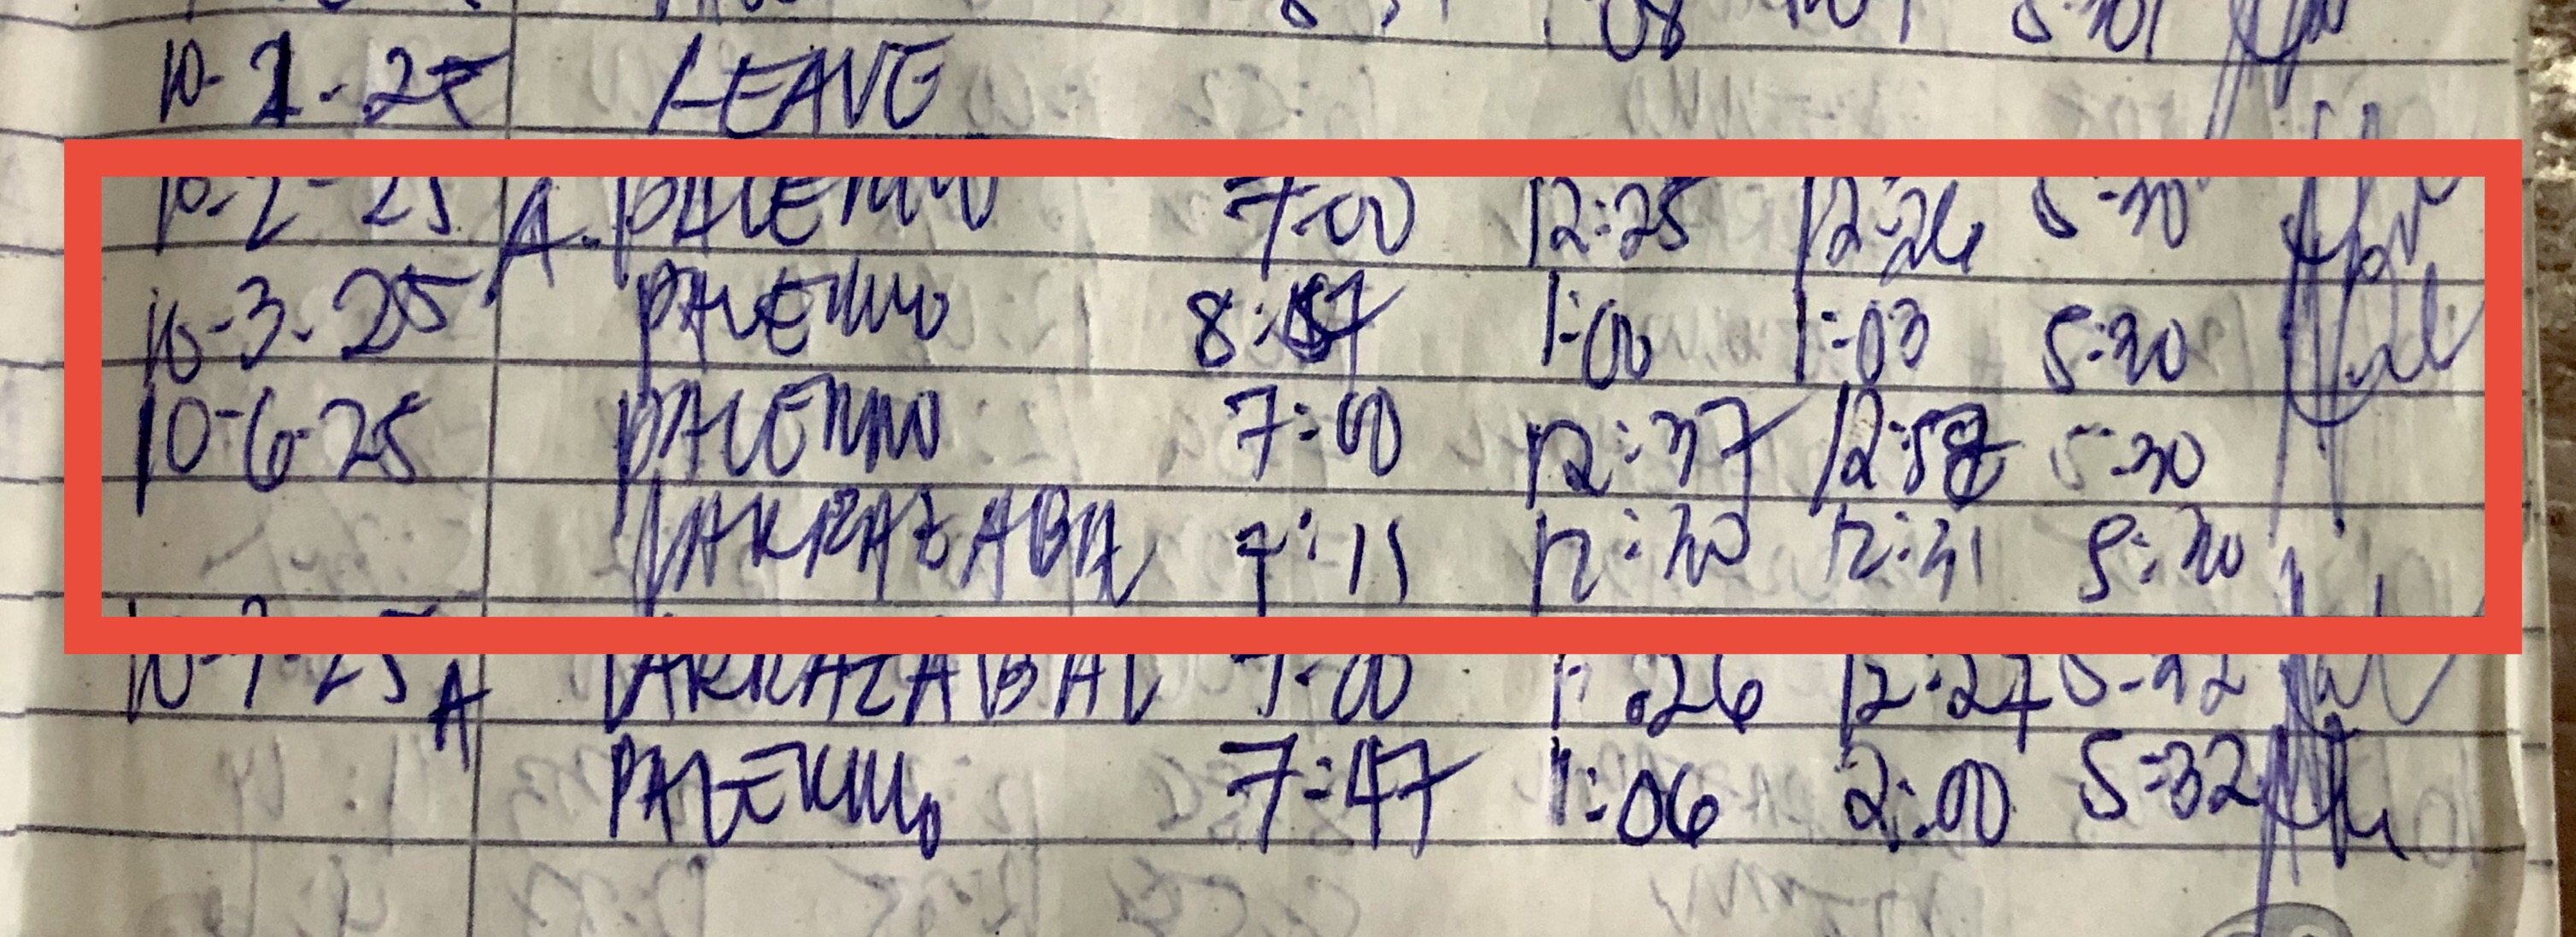 10-1-25 LEAVE
10-2-25 A. PALERMO 7:00 12:25 12:26 5:30
10-3-25 PALERMO 8:07 1:00 1:03 5:30
10-6-25 PALERMO 7:00 12:37 12:58 5:30
LARRAZABAL 7:15 12:30 12:31 5:30
10-7-25 A LARRAZABAL 7:00 :26 12:27 5:32
PALERMO 7:47 1:06 2:00 5:32